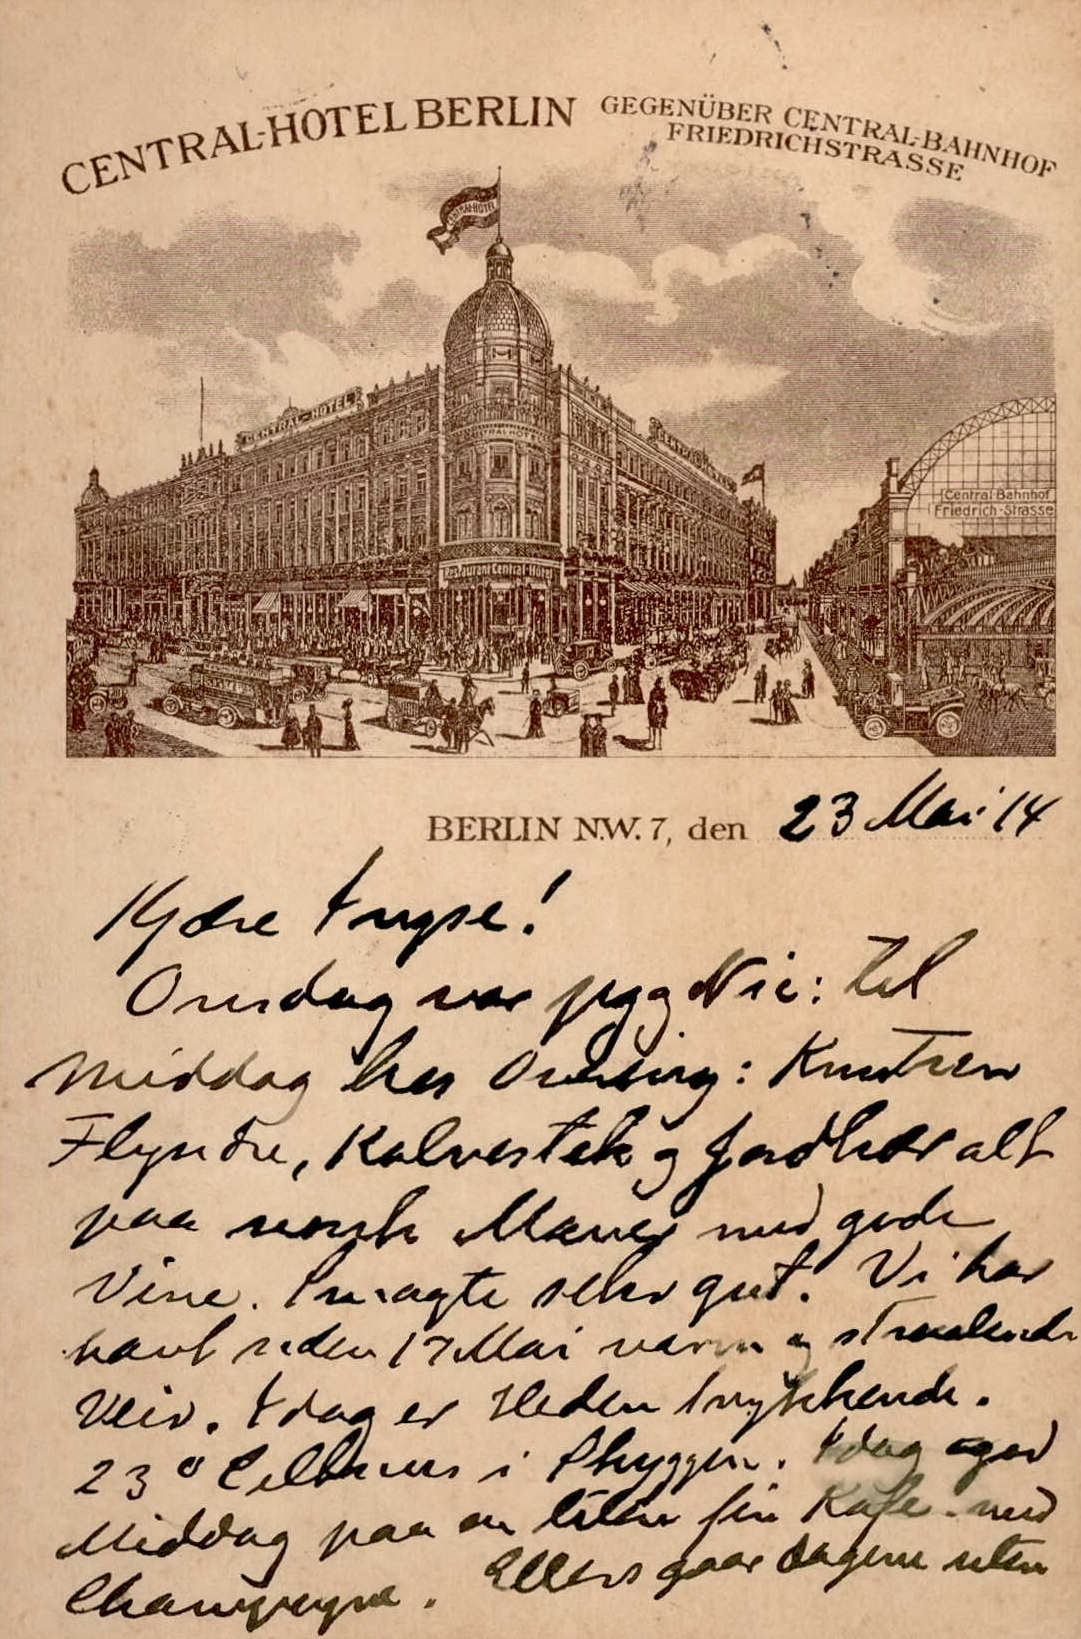 CENTRAL-HOTEL BERLIN GEGENÜBER CENTRAL-BAHNHOF
FRIEDRICHSTRASSE
CENTRAL-HOTEL
CENTRAL-HOTEL
CENTRAL-HOTEL
Central Bahnhof
Friedrich-Strasse
Restaurant Central-Hotel
BERLIN N.W. 7, den 23 Mai 14
Kjære !
Onsdag var jeg og til
Middag hos : Knutsen
Flyndre, Kalvestek og Jordbær alt
paa norsk Maner med gode
Vine. Smagte sehr gut! Vi har
havt siden 17 Mai varm og straalende
Veir. Idag er Heden trykkende.
23° Celsius i Skyggen. Idag
Middag paa en liten fin Kafe med
Champagne. Ellers gaar dagene uten